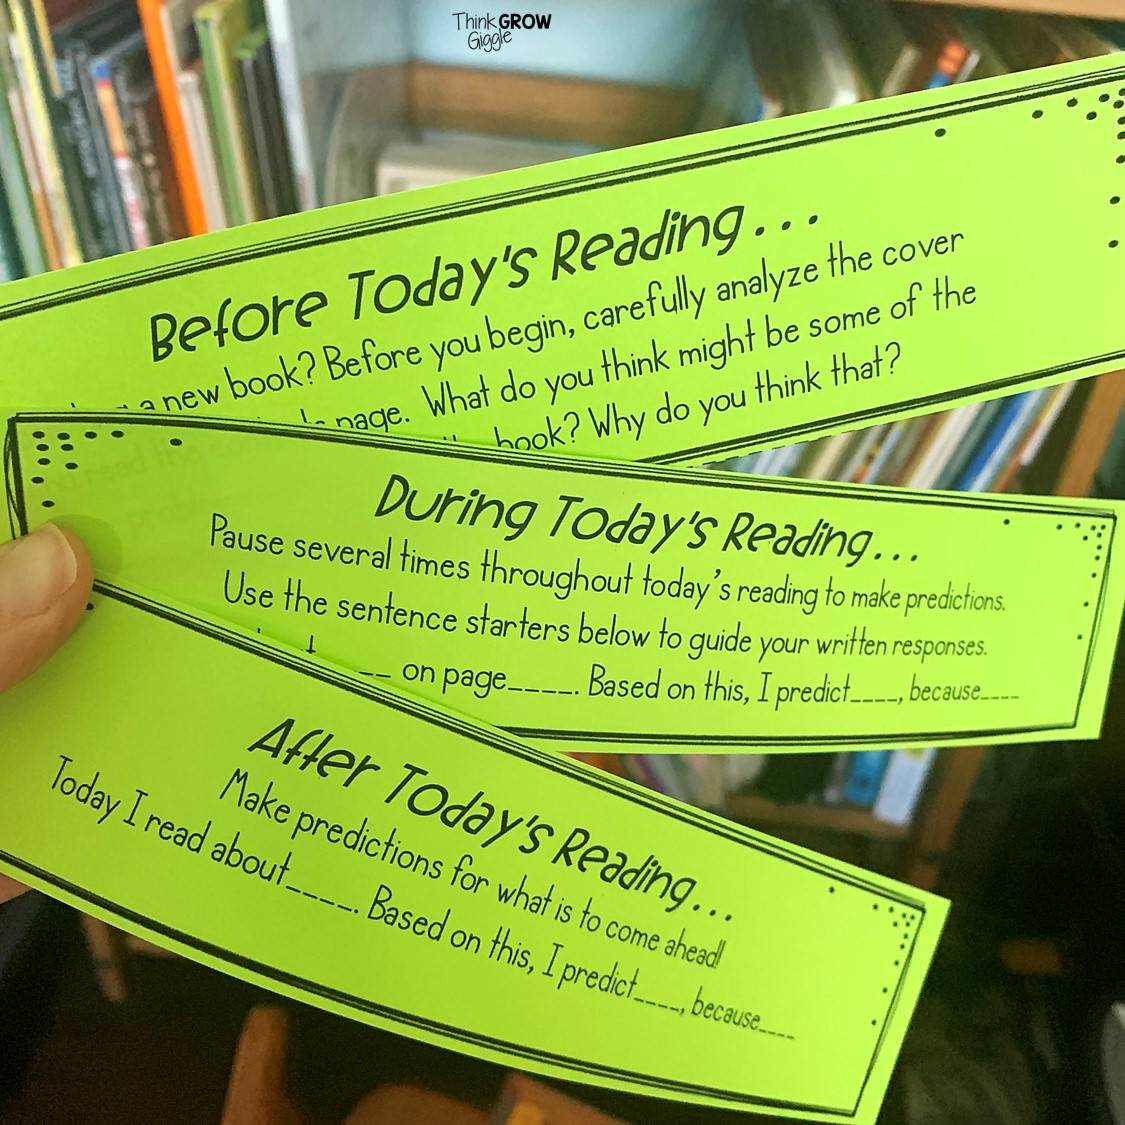 Think GROW
Giggle
Before Today's Reading...
a new book? Before you begin, carefully analyze the cover
page. What do you think might be some of the
book? Why do you think that?
During Today's Reading...
Pause several times throughout today's reading to make predictions.
Use the sentence starters below to guide your written responses.
__ on page____. Based on this, I predict____, because____
After Today's Reading...
Make predictions for what is to come ahead!
Today I read about____. Based on this, I predict____, because____